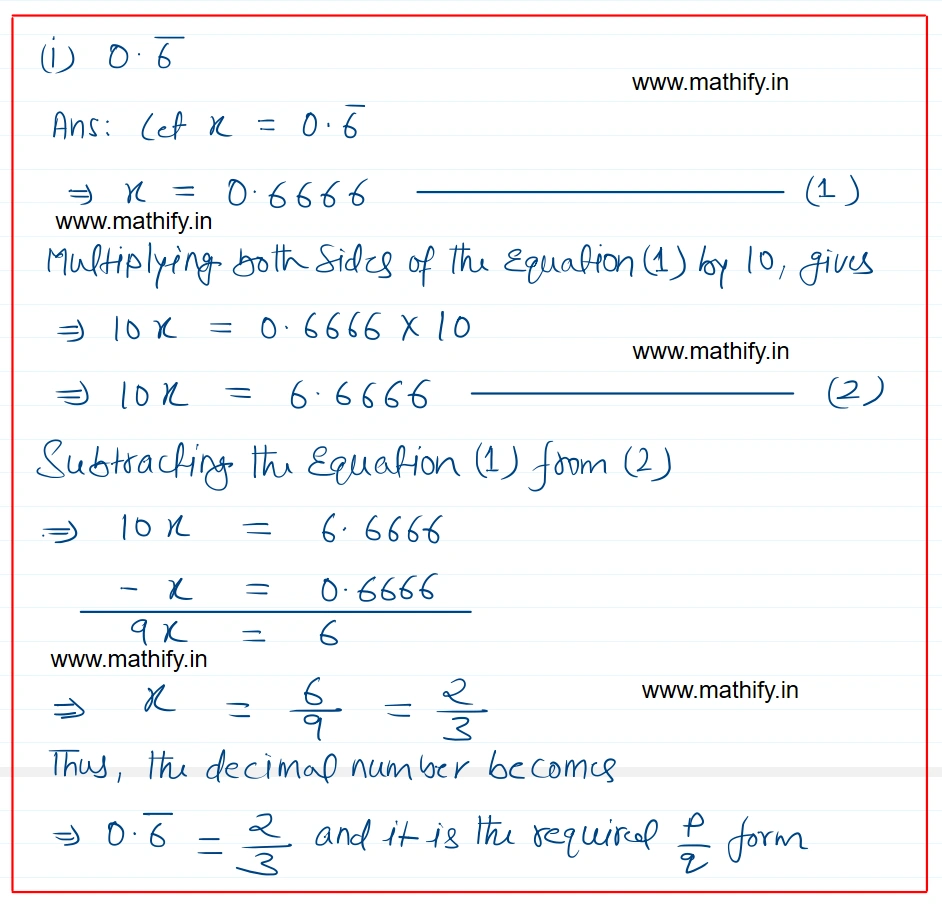 (i) 0.6̅
www.mathify.in
Ans: Let x = 0.6̅
⇒ x = 0.6666 ——— (1)
www.mathify.in
Multiplying both sides of the Equation (1) by 10, gives
⇒ 10x = 0.6666 × 10
www.mathify.in
⇒ 10x = 6.6666 ——— (2)
Subtracting the Equation (1) from (2)
⇒ 10x = 6.6666
- x = 0.6666
9x = 6
www.mathify.in
⇒ x = 6/9 = 2/3
www.mathify.in
Thus, the decimal number becomes
⇒ 0.6̅ = 2/3 and it is the required p/q form